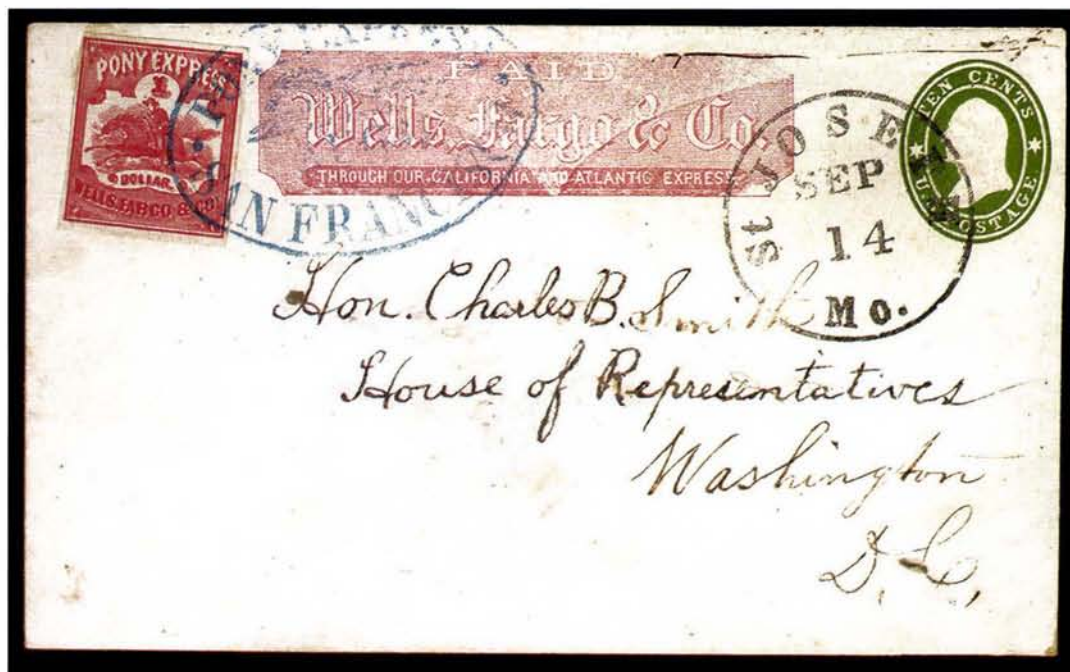 PONY EXPRESS
DOLLAR
WELLS, FARGO & CO
SAN FRANCISCO
PAID
Wells, Fargo & Co.
THROUGH OUR CALIFORNIA AND ATLANTIC EXPRESS
St JOSEPH
SEP
14
Mo.
TEN CENTS
U.S. POSTAGE
Hon. Charles B. Smith
House of Representatives
Washington
D.C.